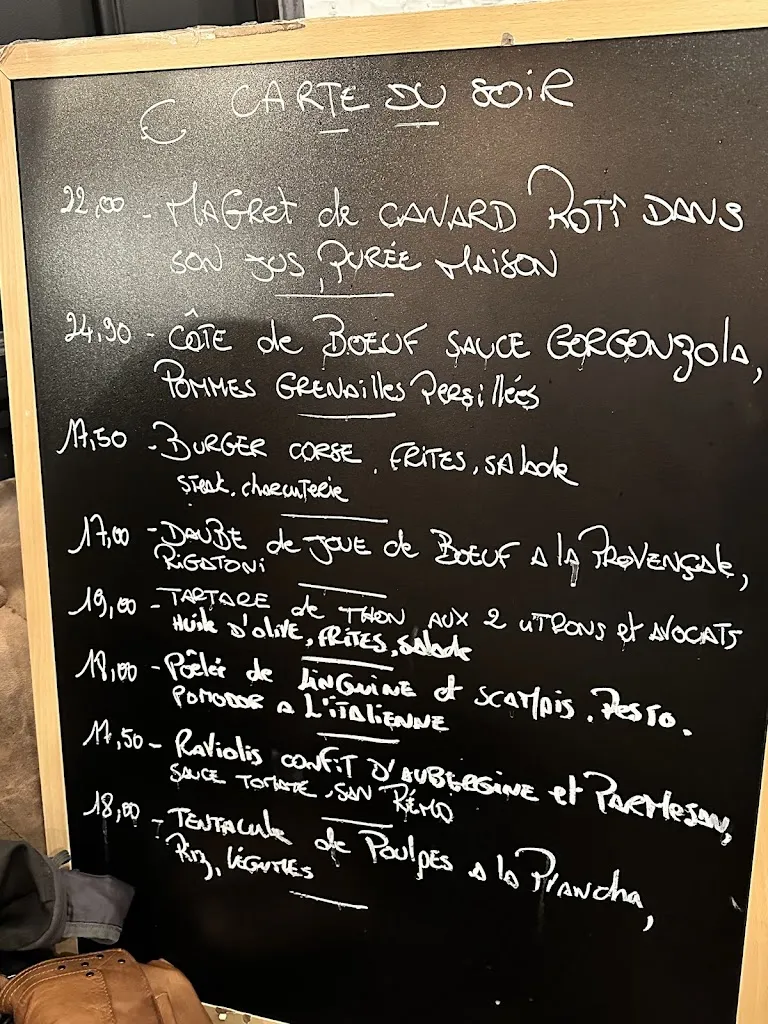 € CARTE DU SOIR
22,00 - MAGRET de CANARD RÔTÎ DANS
SON JUS, PURÉE MAISON
24,90 - CÔTE de BOEUF SAUCE GORGONZOLA,
POMMES GRENAILLES PERSILLÉES
17,50 - BURGER CORSE, FRITES, SALADE
STEAK, CHARCUTERIE
17,00 - DAUBE de JOUE de BOEUF A la PROVENÇALE,
RIGATONI
19,00 - TARTARE de THON AUX 2 CITRONS et AVOCATS
HUILE D'OLIVE, FRITES, SALADE
18,00 - Poêlée de LINGUINE et SCAMPIS. PESTO.
POMODOR A L'ITALIENNE
17,50 - Raviolis CONFIT D'AUBERGINE et PARMESAN,
SAUCE TOMATE, SAN RÉMO
18,00 - TENTACULE de Poulpes A la Plancha,
Riz, LÉGUMES